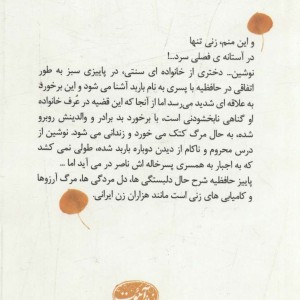 و این منم، زنی تنها
در آستانه ی فصلی سرد..!
نوشین... دختری از خانواده ای سنتی، در پاییزی سبز به طور
اتفاقی در حافظیه با پسری به نام باربد آشنا می شود و این برخورد
به علاقه ای شدید می رسد اما از آنجا که این قضیه در عُرف خانواده
او گناهی نابخشودنی است، با برخورد بد برادر و والدینش روبرو
شده، به حال مرگ کتک می خورد و زندانی می شود. نوشین از
درس محروم و ناکام از دیدن دوباره باربد شده، طولی نمی کشد
که به اجبار به همسری پسرخاله اش ناصر در می آید اما ...
پاییز حافظیه شرح حال دلبستگی ها، دل مردگی ها، مرگ آرزوها
و کامیابی های زنی است مانند هزاران زن ایرانی.